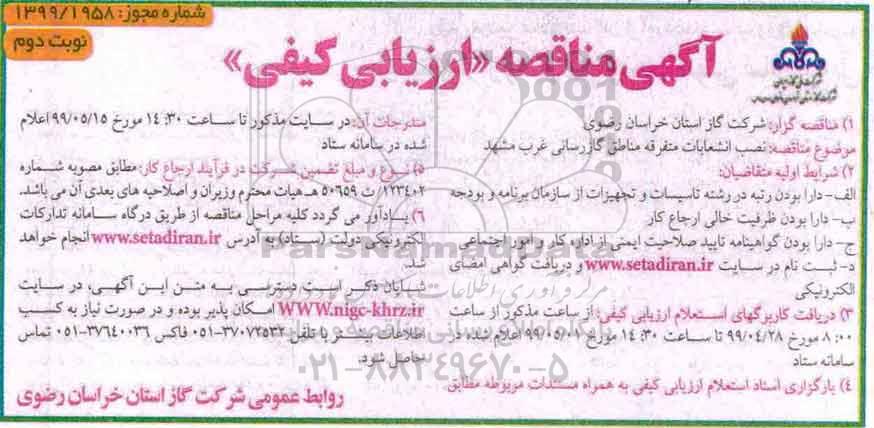 شماره مجوز: ۱۳۹۹/۱۹۵۸
نوبت دوم
آگهی مناقصه «ارزیابی کیفی»
۱) مناقصه گزار: شرکت گاز استان خراسان رضوی
موضوع مناقصه: نصب انشعابات متفرقه مناطق گازرسانی غرب مشهد
۲) شرایط اولیه متقاضیان:
الف- دارا بودن رتبه در رشته تاسیسات و تجهیزات از سازمان برنامه و بودجه
ب- دارا بودن ظرفیت خالی ارجاع کار
ج- دارا بودن گواهینامه تایید صلاحیت ایمنی از اداره کار و امور اجتماعی
د- ثبت نام در سایت www.setadiran.ir و دریافت گواهی امضای
الکترونیکی
۳) دریافت کاربرگهای استعلام ارزیابی کیفی: از ساعت مذکور از ساعت
۸:۰۰ مورخ ۹۹/۰۴/۲۸ تا ساعت ۱۴:۳۰ مورخ ۹۹/۰۵/۰۱ اعلام شده در
سامانه ستاد
۴) بارگزاری اسناد استعلام ارزیابی کیفی به همراه مستندات مربوطه مطابق
مندرجات آن: در سایت مذکور تا ساعت ۱۴:۳۰ مورخ ۹۹/۰۵/۱۵ اعلام
شده در سامانه ستاد
۵) نوع و مبلغ تضمین شرکت در فرآیند ارجاع کار: مطابق مصوبه شماره
۱۲۳۴۰۲/ت ۵۰۶۵۹ هـ هیات محترم وزیران و اصلاحیه های بعدی آن می باشد.
۶) یادآور می گردد کلیه مراحل مناقصه از طریق درگاه سامانه تدارکات
الکترونیکی دولت (ستاد) به آدرس www.setadiran.ir انجام خواهد
شد.
شایان ذکر است دسترسی به متن این آگهی، در سایت
WWW.nigc-khrz.ir امکان پذیر بوده و در صورت نیاز به کسب
اطلاعات بیشتر با تلفن ۳۷۰۷۲۵۳۲-۰۵۱ فاکس ۳۷۶۴۰۰۳۶-۰۵۱ تماس
حاصل شود.
روابط عمومی شرکت گاز استان خراسان رضوی
ParsNamadData
۰۲۱-۸۸۳۴۹۶۷۰-۵